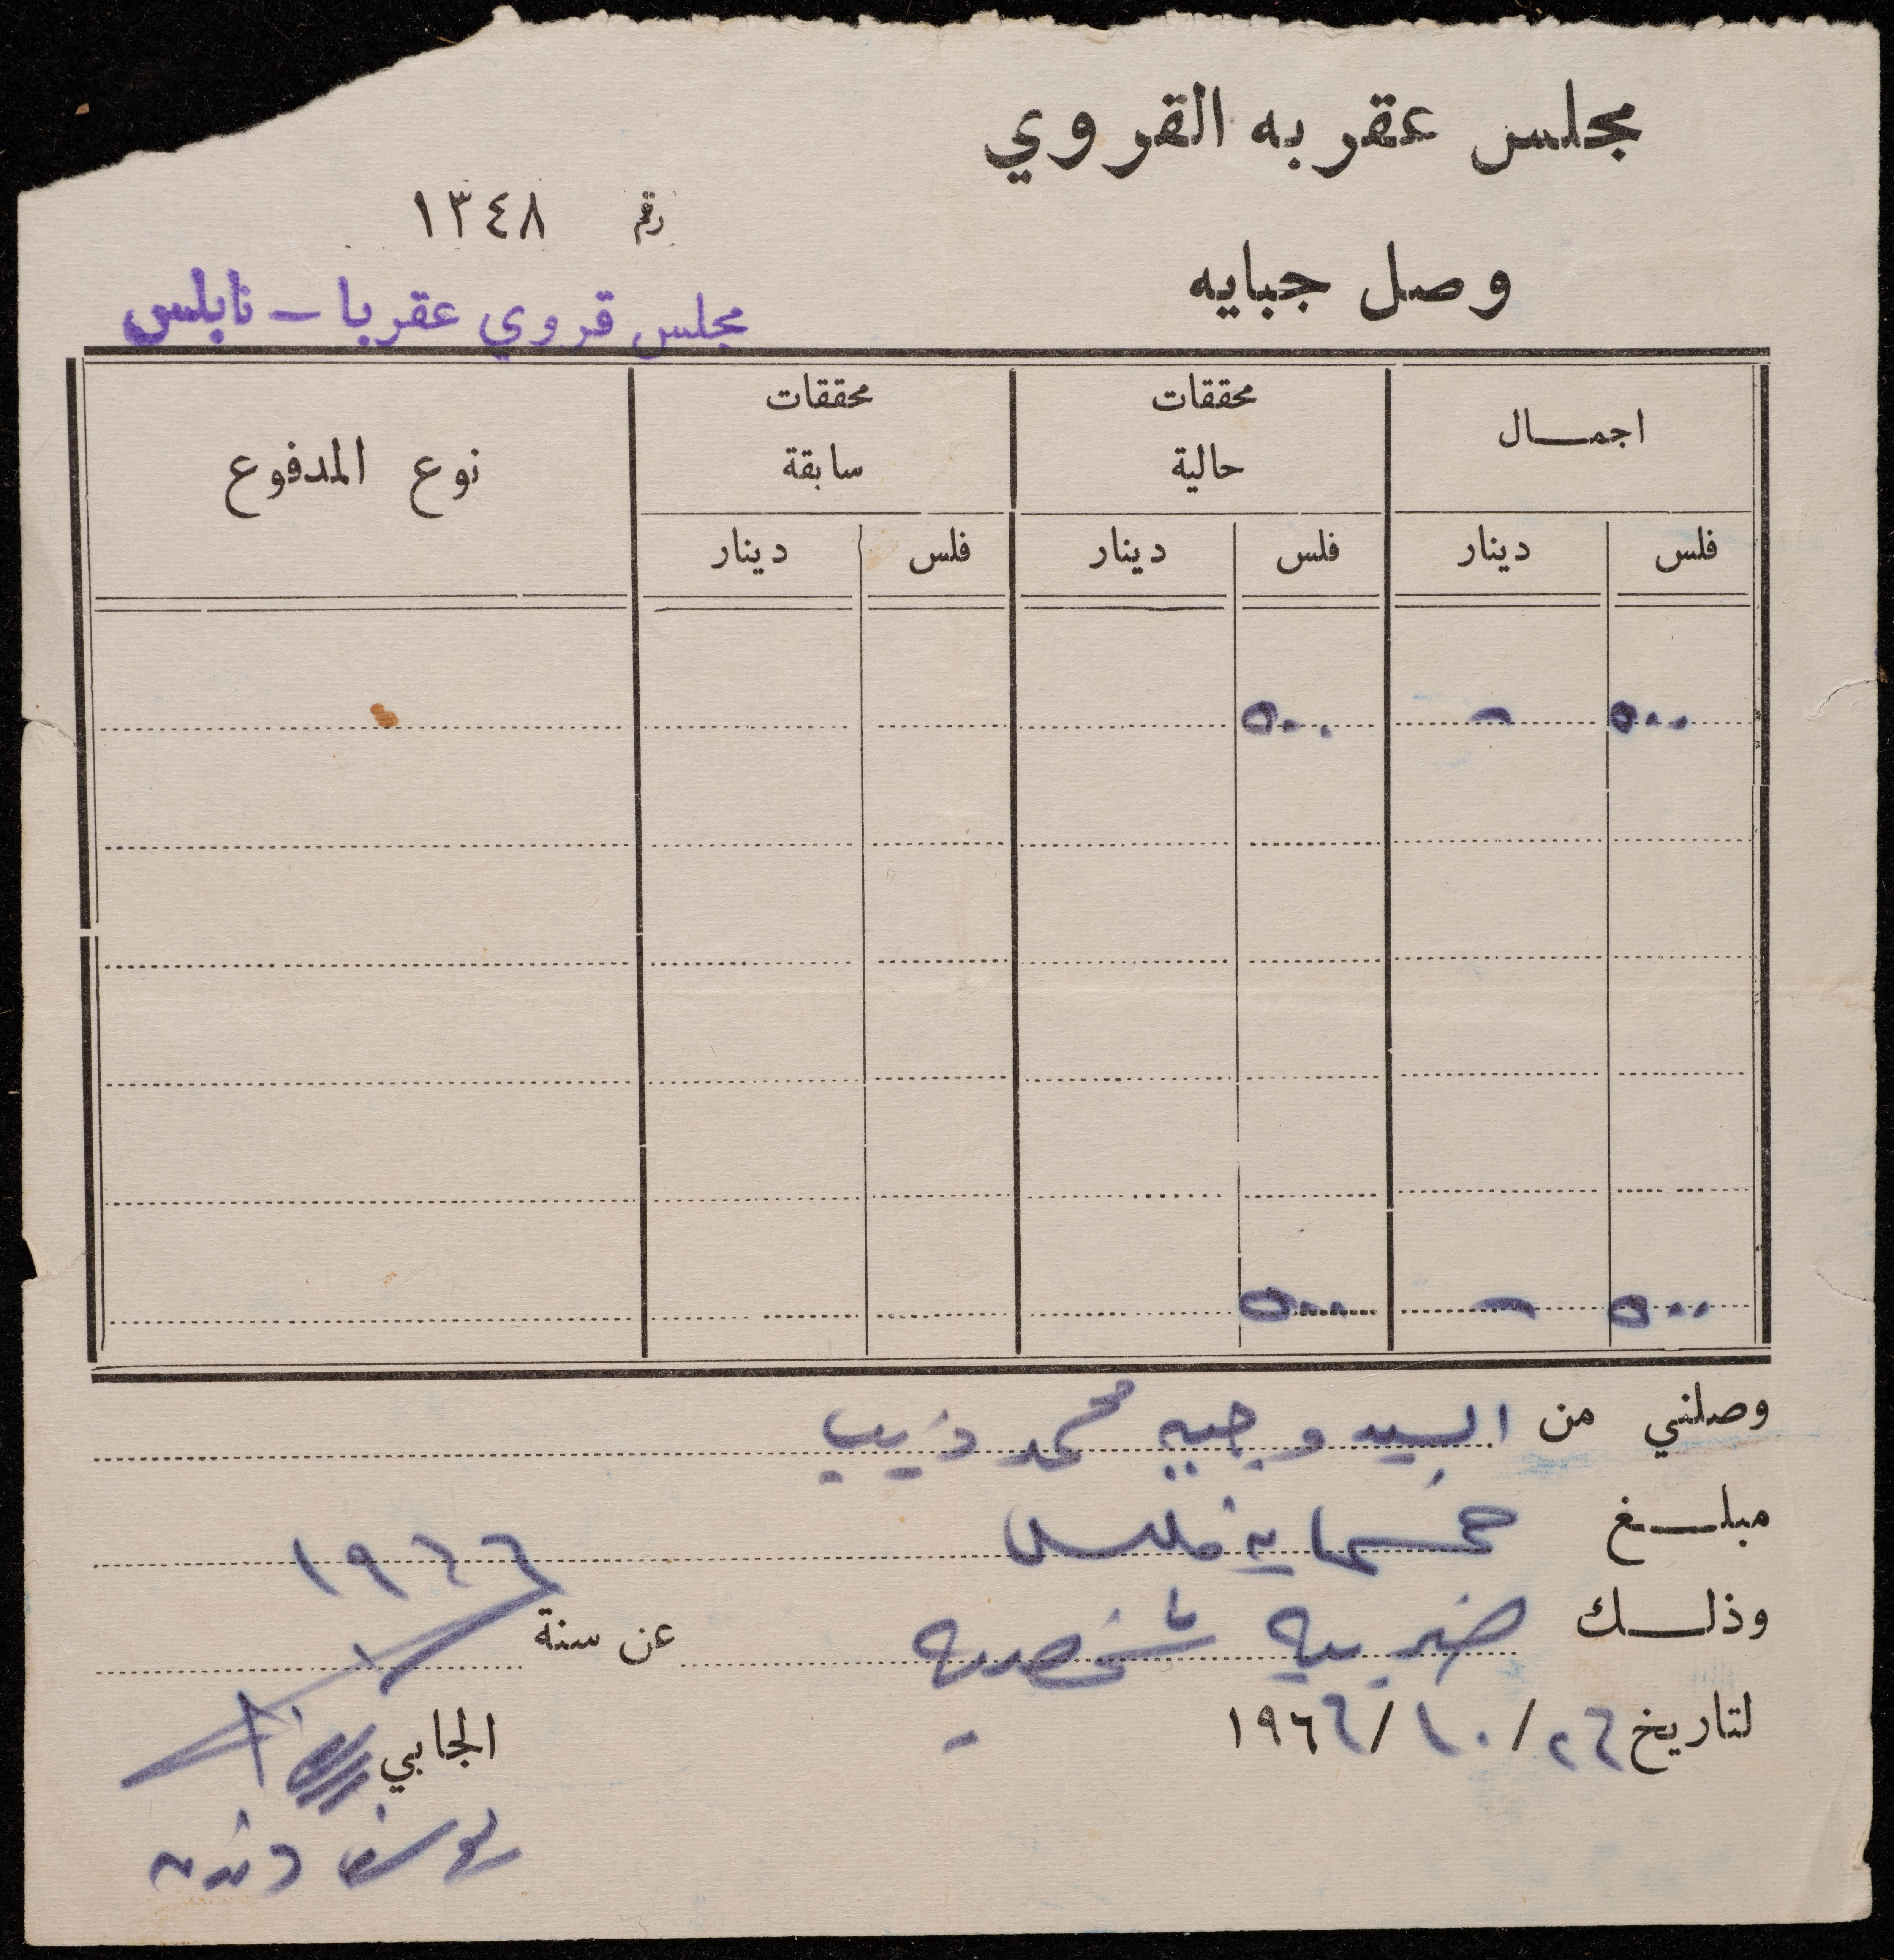 مجلس عقربه القروي
رقم ١٣٤٨
وصل جبايه
مجلس قروي عقربا - نابلس
اجمـــال محققات حالية محققات سابقة نوع المدفوع
فلس دينار فلس دينار فلس دينار
٥٠٠ - ٥٠٠
٥٠٠ - ٥٠٠
وصلني من السيد وجيه محمد ذيب
مبلـــغ خمسماية فلس
وذلـــك ضريبه شخصيه عن سنة ١٩٦٦
لتاريخ ٢٦/١٠/١٩٦٦
الجابي
يوسف